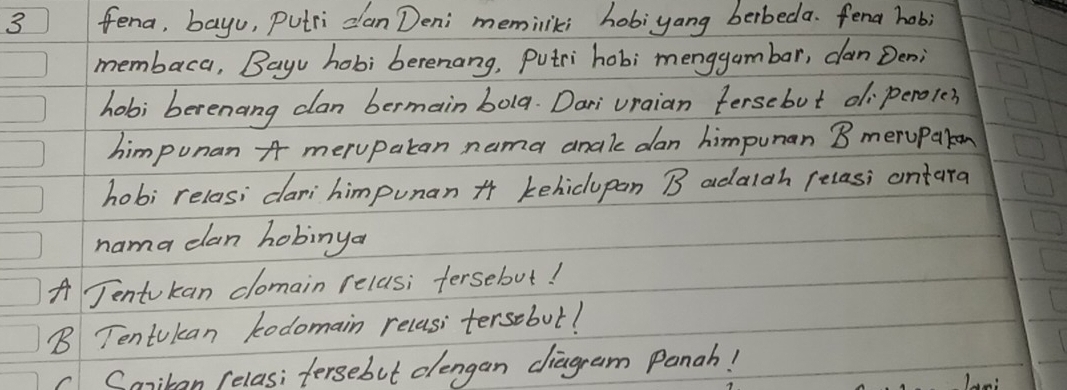 3 fena, bayu, Putri dan Deni memiliki hobi yang berbeda. fena hobi
membaca, Bayu hobi berenang, Putri hobi menggambar, dan Deni
hobi berenang dan bermain bola. Dari uraian tersebut diperoleh
himpunan A merupakan nama anak dan himpunan B merupakan
hobi relasi dari himpunan A kehidupan B adalah relasi antara
nama dan hobinya
A Tentukan domain relasi tersebut!
B Tentukan kodomain relasi tersebut!
C Sajikan relasi tersebut dengan diagram Panah!